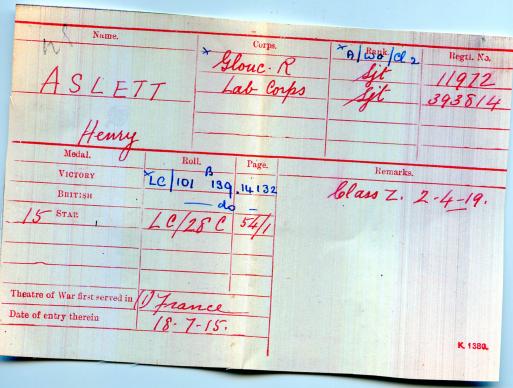 Name. Corps. Rank. Regtl. No.
× Glouc. R × A/WO/Cl 2 Sjt 11972
ASLETT Lab Corps Sjt 393814
Henry
Medal. Roll. Page. Remarks.
VICTORY × LC/101 B 139 14132 Class Z. 2-4-19.
BRITISH — do —
15 STAR LC/28 C 54/1
Theatre of War first served in (1) France
Date of entry therein 18-7-15.
K. 1380.